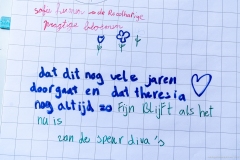 prachtige bloemen
dat dit nog vele jaren
doorgaat en dat theresia
nog altijd zo Fijn Blijft als het
nu is
van de speur diva's